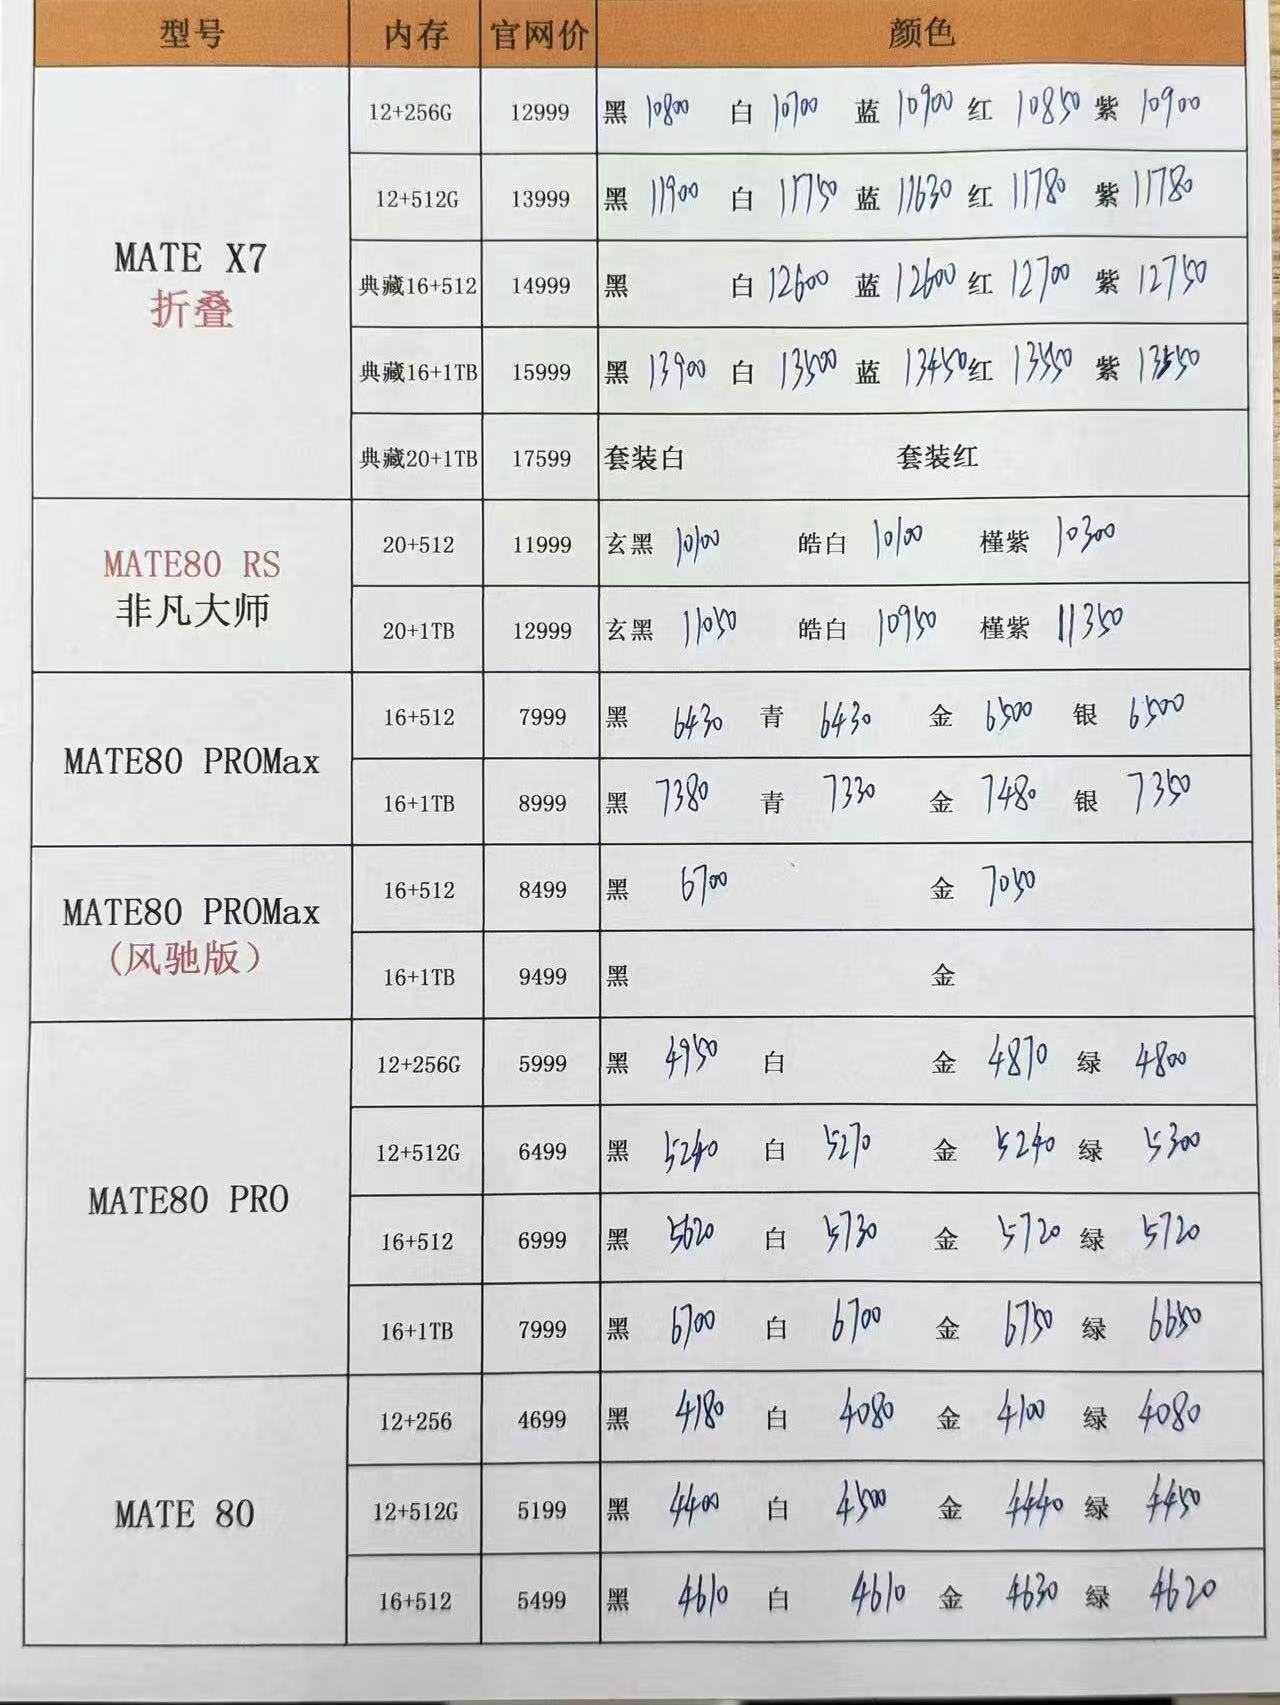 型号 内存 官网价 颜色
MATE X7
折叠
12+256G 12999 黑 10800 白 10700 蓝 10900 红 10850 紫 10900
12+512G 13999 黑 11900 白 11750 蓝 11630 红 11780 紫 11780
典藏16+512 14999 黑 白 12600 蓝 12600 红 12700 紫 12750
典藏16+1TB 15999 黑 13900 白 13500 蓝 13450 红 13550 紫 13550
典藏20+1TB 17599 套装白 套装红
MATE80 RS
非凡大师
20+512 11999 玄黑 10100 皓白 10100 槿紫 10300
20+1TB 12999 玄黑 11050 皓白 10950 槿紫 11350
MATE80 PROMax
16+512 7999 黑 6430 青 6430 金 6500 银 6500
16+1TB 8999 黑 7380 青 7330 金 7480 银 7350
MATE80 PROMax
(风驰版)
16+512 8499 黑 6700 金 7050
16+1TB 9499 黑 金
MATE80 PRO
12+256G 5999 黑 4950 白 金 4870 绿 4800
12+512G 6499 黑 5240 白 5270 金 5240 绿 5300
16+512 6999 黑 5620 白 5730 金 5720 绿 5720
16+1TB 7999 黑 6700 白 6700 金 6750 绿 6650
MATE 80
12+256 4699 黑 4180 白 4080 金 4100 绿 4080
12+512G 5199 黑 4400 白 4500 金 4440 绿 4450
16+512 5499 黑 4610 白 4610 金 4630 绿 4620